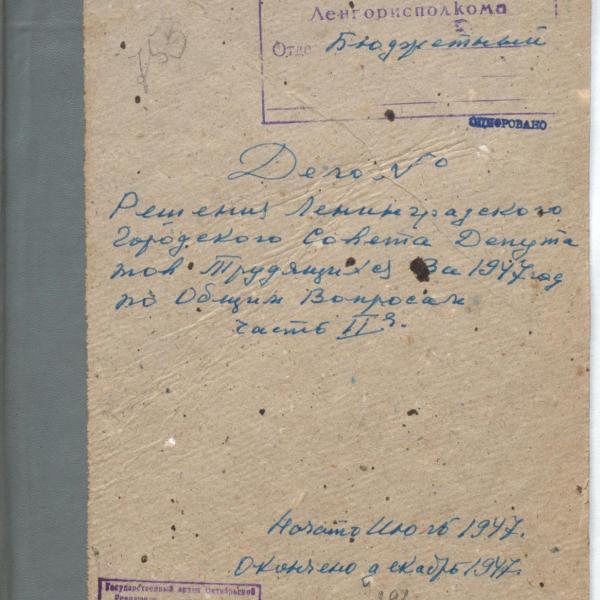 753
Ленгорисполкома
Отде Бюджетный
ОЦИФРОВАНО
Дело №
Решения Ленинградского
Городского Совета Депута
тов Трудящихся За 1947 год
по Общим Вопросам
часть IIя.
Начато Июль 1947.
Окончено декабрь 1947.
Государственный архив Октябрьской